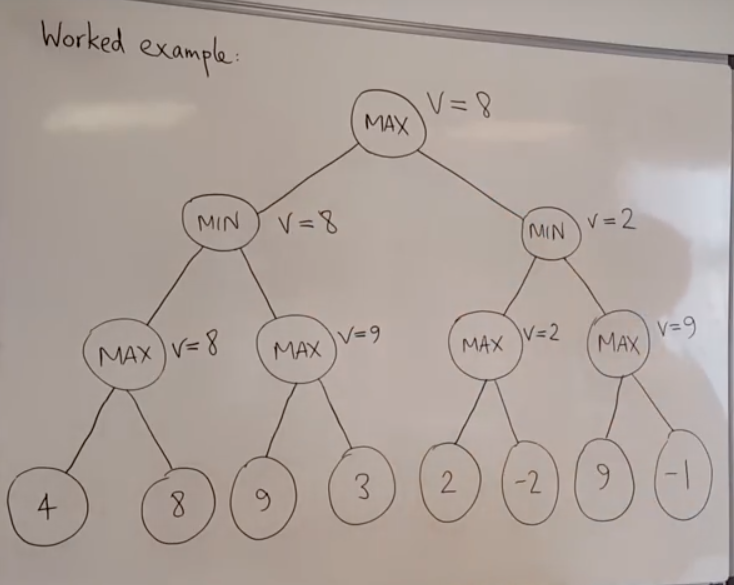 Worked example:
MAX V=8
MIN V=8 MIN V=2
MAX V=8 MAX V=9 MAX V=2 MAX V=9
4 8 9 3 2 -2 9 -1